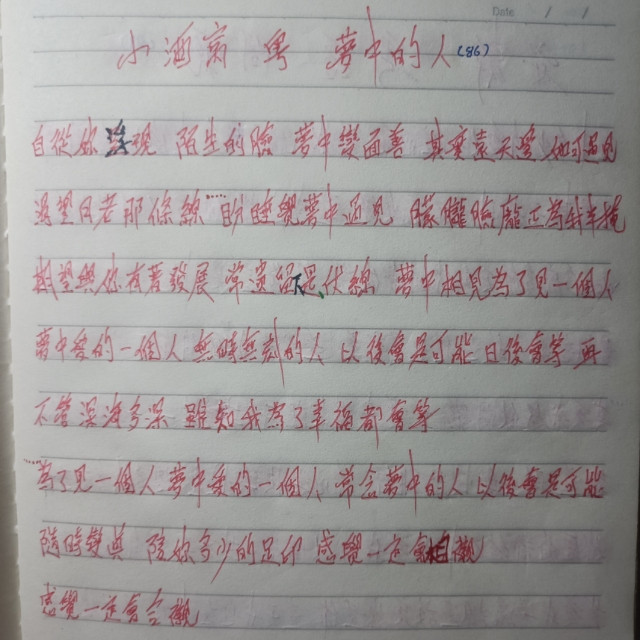 Date / /
小酒窩 粵 夢中的人 (86)
自從你出現 陌生的臉 夢中變面善 其實意天愛 也可遇見
渴望月老那條線 盼睡覺夢中遇見 朦朧臉龐正為我半掩
期望與你有著發展 常遺留是伏線 夢中相見為了見一個人
夢中愛的一個人 無時無刻的人 以後會是可能 日後會等 再
不管深海多深 誰知我為了幸福都會等
為了見一個人 夢中愛的一個人 常念夢中的人 以後會是可能
隨時變真 陪你多少的足印 感覺一定會相襯
感覺一定會合襯